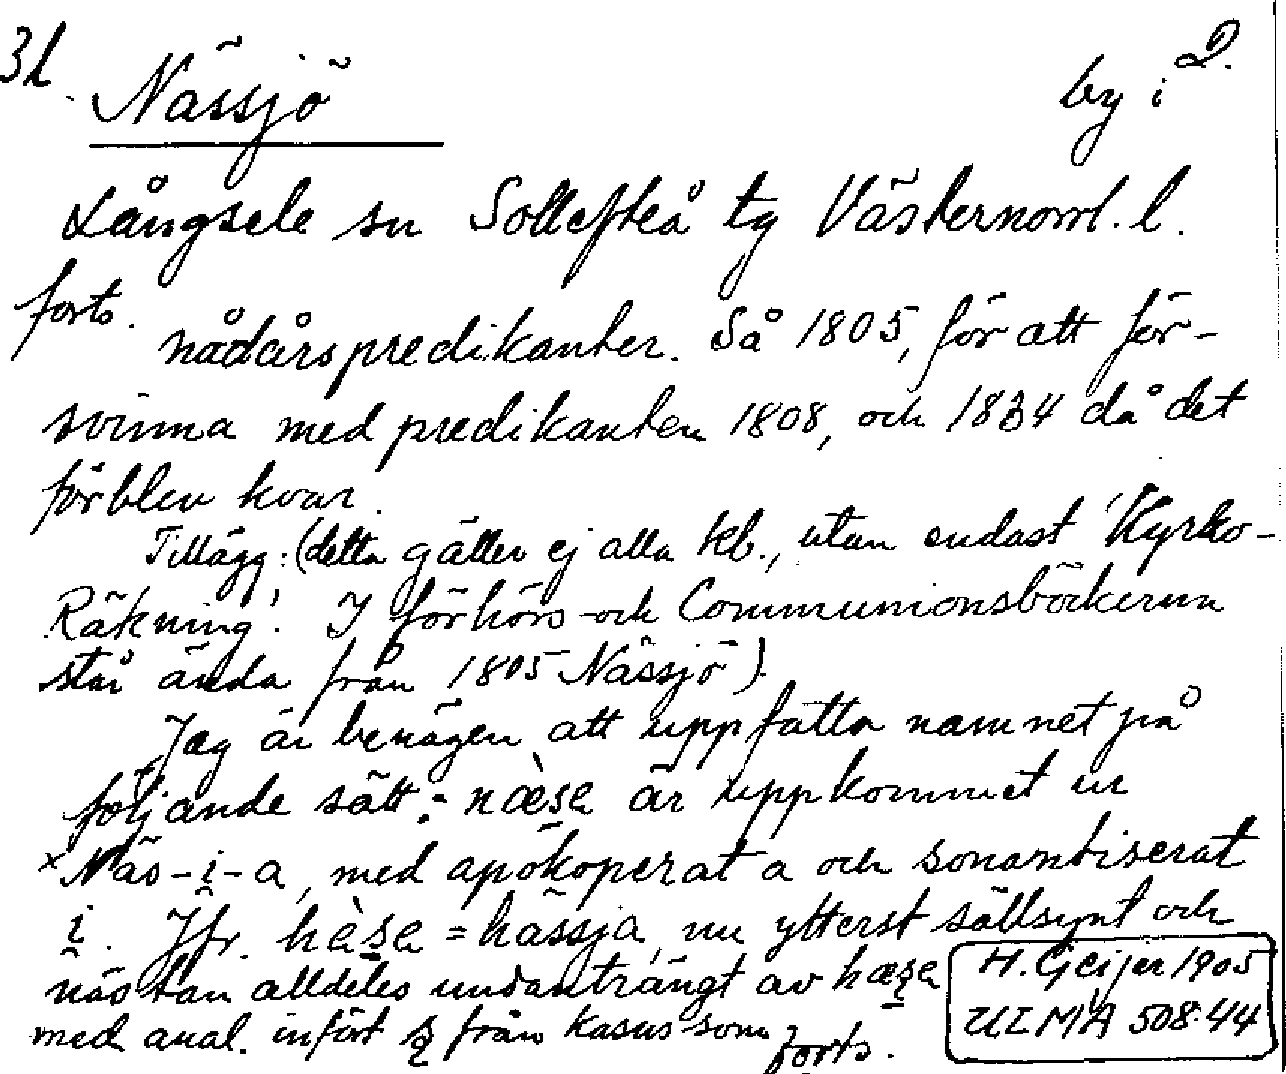 Nässjö by i 2.
Långsele sn Sollefteå tg Västernorrl. l.
forts.
nådårspredikanter. Så 1805, för att för-
svinna med predikanten 1808, och 1834 då det
förblev kvar.
Tillägg: (detta gäller ej alla kb., utan endast 'Kyrko-
Räkning'. I förhörs- och Communionsböckerna
står ända från 1805 Nässjö).
Jag är benägen att uppfatta namnet på
följande sätt: næ̀se är uppkommet ur
×Näs-i-a, med apokoperat a och sonantiserat
i. Jfr. hæ̀se = hässja, nu ytterst sällsynt och
nästan alldeles undanträngt av hæse
med anal. infört från kasus som
forts.
H. Geijer 1905
ULMA 508:44